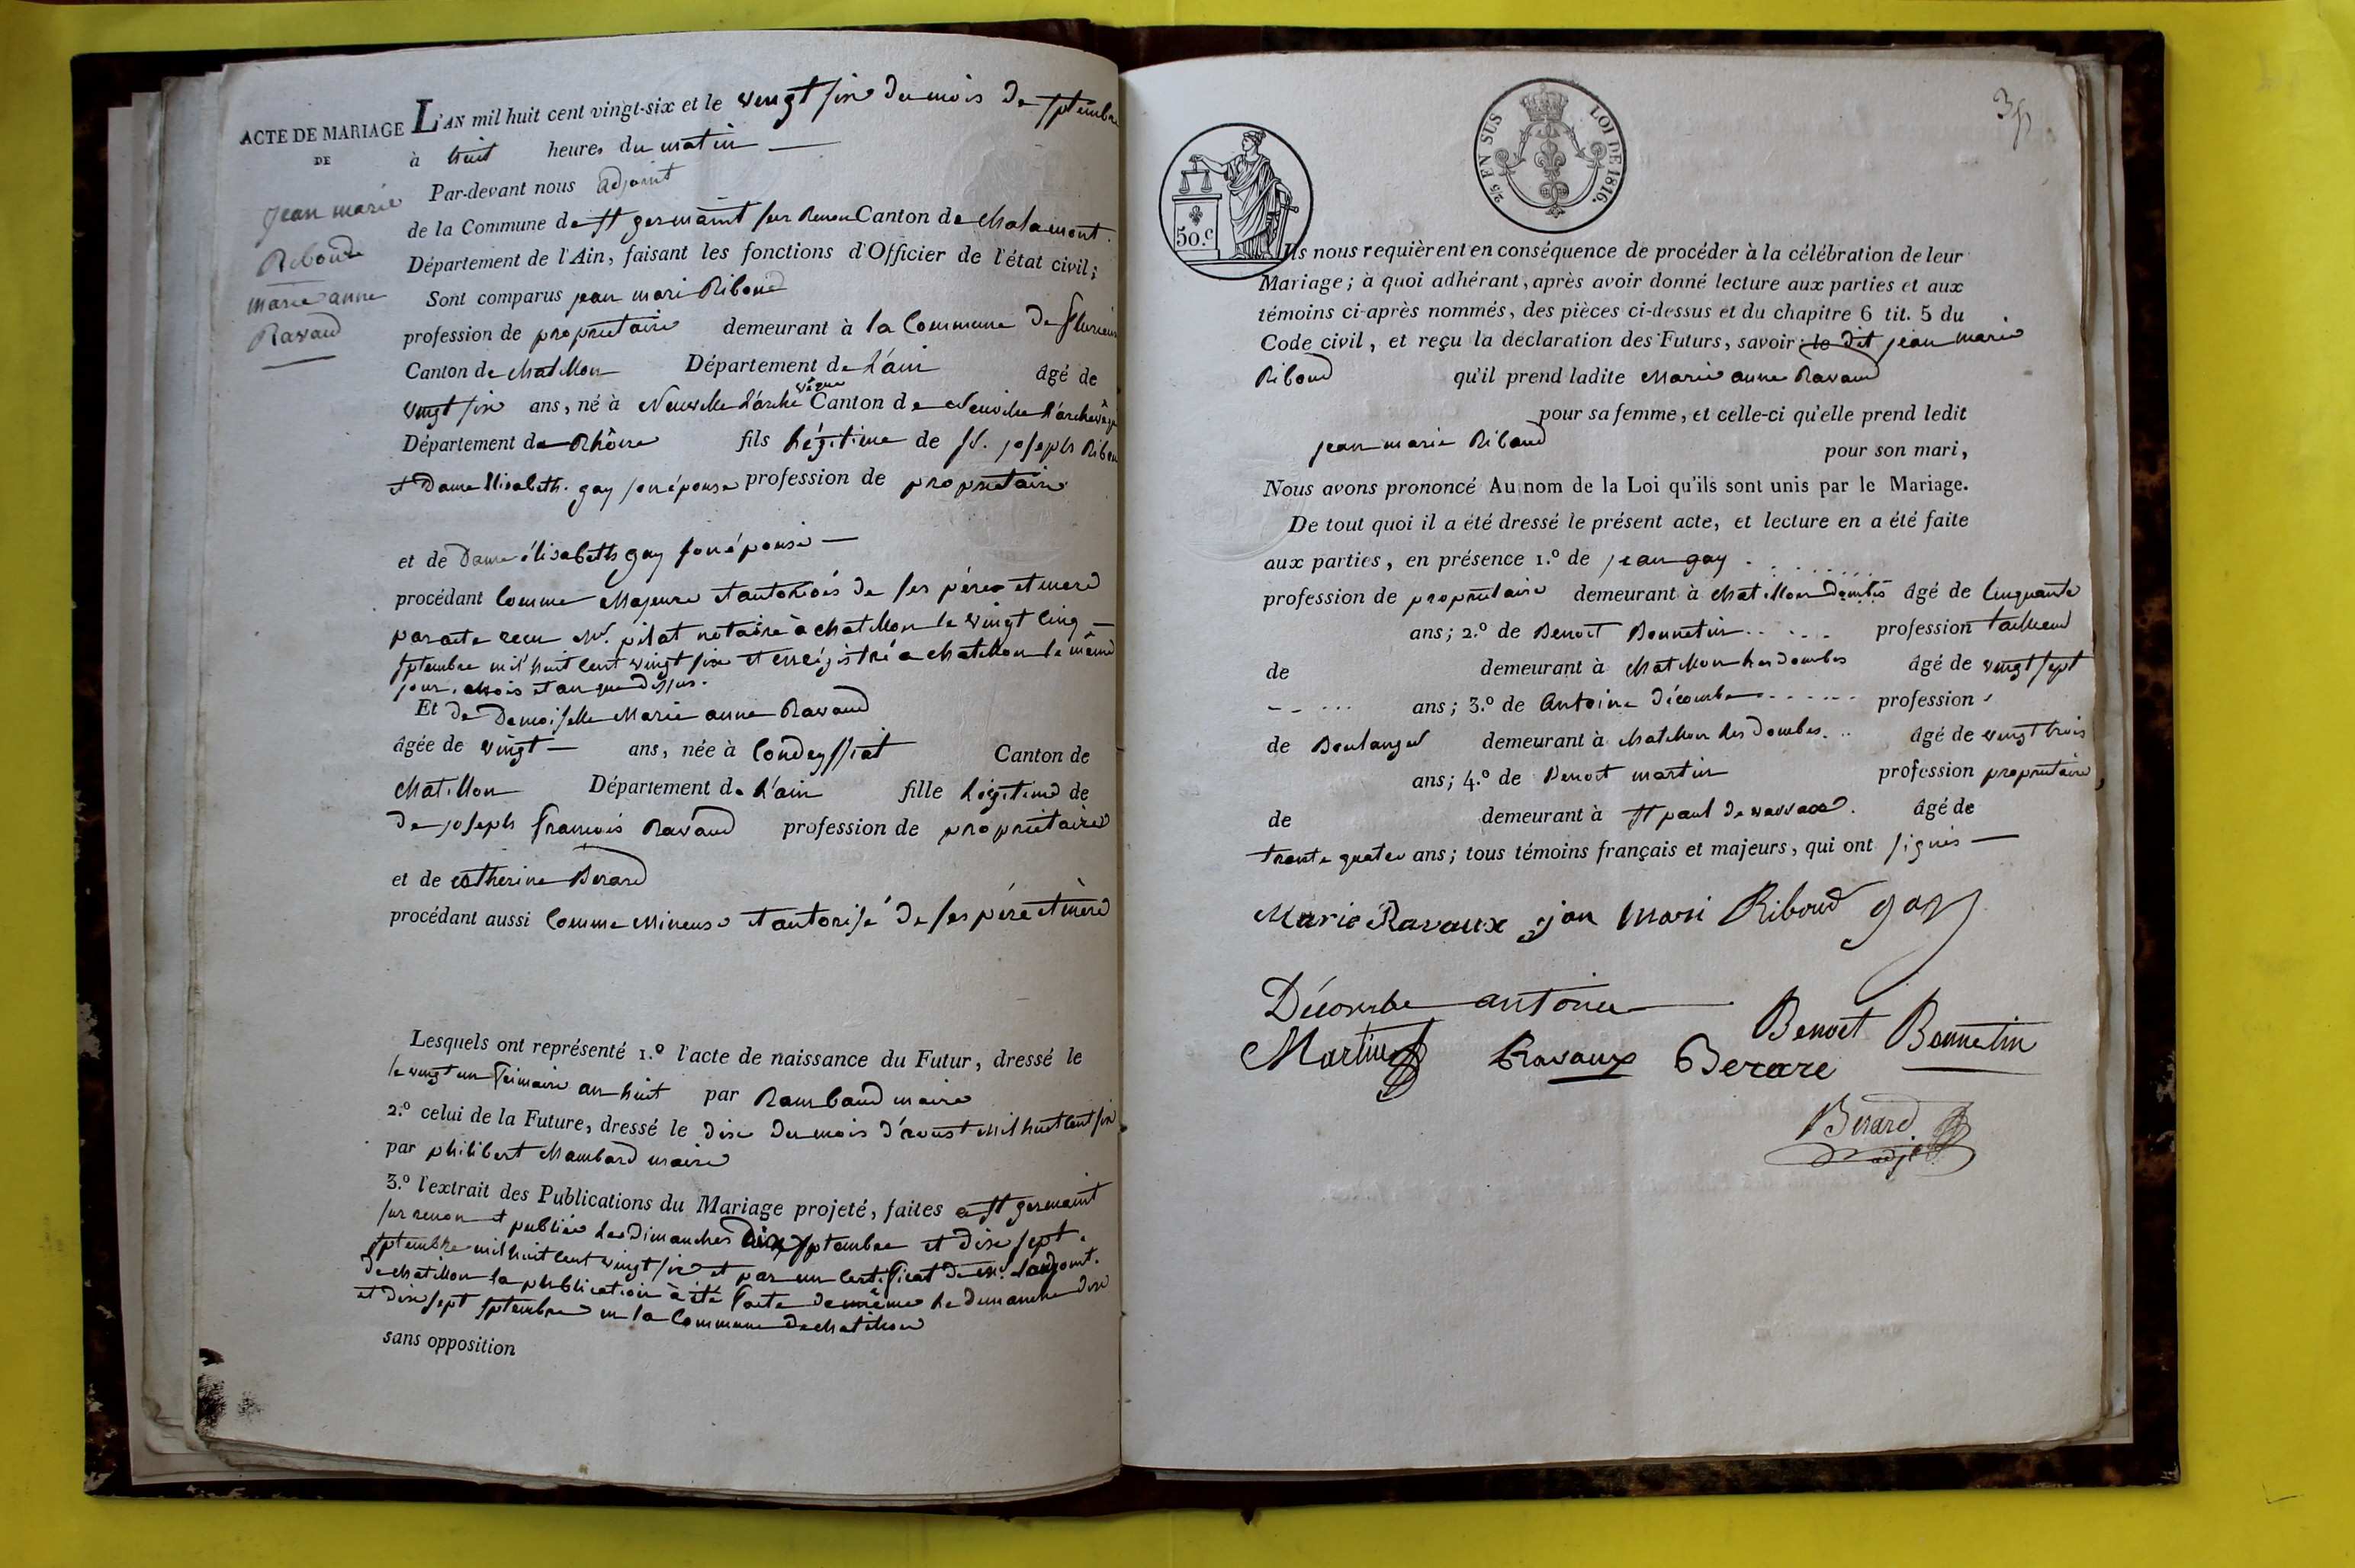 ACTE DE MARIAGE
DE
jean marie
Riboud
marie anne
Ravaud
L'AN mil huit cent vingt-six et le vingt six du mois de septembre
à huit heures du matin
Par-devant nous adjoint
de la Commune de st germaint sur Renon Canton de chalamont.
Département de l'Ain, faisant les fonctions d'Officier de l'état civil;
Sont comparus jean mari Riboud
profession de proprietaire demeurant à la Commune de
Canton de chatillon Département de L'ain âgé de
vêque
vingt six ans, né à Neuville L'arche Canton de Neuville L'archevêque
Département de Rhône fils Légitime de sr. joseph Riboud
et Dame Elisabeth gay son épouse profession de proprietaire
et de Dame élisabeth gay son épouse
procédant Comme Majeure et autorisés de ses pères et mere
par acte recu Mr. pilat notaire à chatillon le vingt cinq
septembre mil huit cent vingt six et enregistré a chatillon le même
jour, mois et an que dessus.
Et de Demoiselle Marie anne Ravaud
âgée de vingt ans, née à Condeyssiat Canton de
chatillon Département de L'ain fille Légitime de
de joseph francois Ravaud profession de proprietaire
et de catherine Berard
procédant aussi Comme Mineure et autorisé de ses père et mère
Lesquels ont représenté 1.º l'acte de naissance du Futur, dressé le
le vingt un frimaire an huit par Rambaud maire
2.º celui de la Future, dressé le dix du mois d'avust mil huit cent six
par philibert Chambard maire
3.º l'extrait des Publications du Mariage projeté, faites a st germaint
sur renon et publiée les Dimanches dix septembre et dix sept
septembre mil huit cent vingt six et par un Certificat de Mr. L'adjoint.
de chatillon la publication à été faite de même le dimanche dix
et dix sept septembre en la Commune de chatillon
sans opposition
25 EN SUS LOI DE 1816.
50.c
Ils nous requièrent en conséquence de procéder à la célébration de leur
Mariage; à quoi adhérant, après avoir donné lecture aux parties et aux
témoins ci-après nommés, des pièces ci-dessus et du chapitre 6 tit. 5 du
Code civil, et reçu la déclaration des Futurs, savoir: le dit jean marie
Riboud qu'il prend ladite Marie anne Ravaud
pour sa femme, et celle-ci qu'elle prend ledit
jean marie Riboud pour son mari,
Nous avons prononcé Au nom de la Loi qu'ils sont unis par le Mariage.
De tout quoi il a été dressé le présent acte, et lecture en a été faite
aux parties, en présence 1.º de jean gay
profession de proprietaire demeurant à chatillon Dombes âgé de Cinquante
ans; 2.º de Benoit Bonnetin profession tailleur
de demeurant à chatillon les dombes âgé de vingt sept
ans; 3.º de Antoine Décombe profession
de Boulanger demeurant à chatillon les Dombes âgé de vingt trois
ans; 4.º de Benoit martin profession proprietaire
de demeurant à st paul de varax. âgé de
trente quatre ans; tous témoins français et majeurs, qui ont signés
Marie Ravaux jan Mari Riboud gay
Décombe antoine
Benoit Bonnetin
Martin Ravaux Berare
Berard
adjt